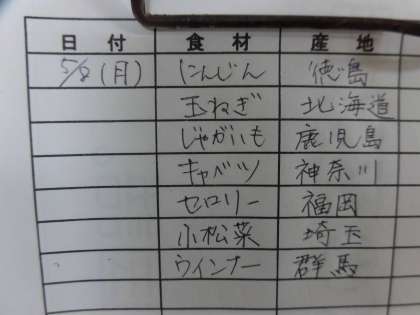 日付 食材 産地
5/8(月) にんじん 徳島
玉ねぎ 北海道
じゃがいも 鹿児島
キャベツ 神奈川
セロリー 福岡
小松菜 埼玉
ウインナー 群馬